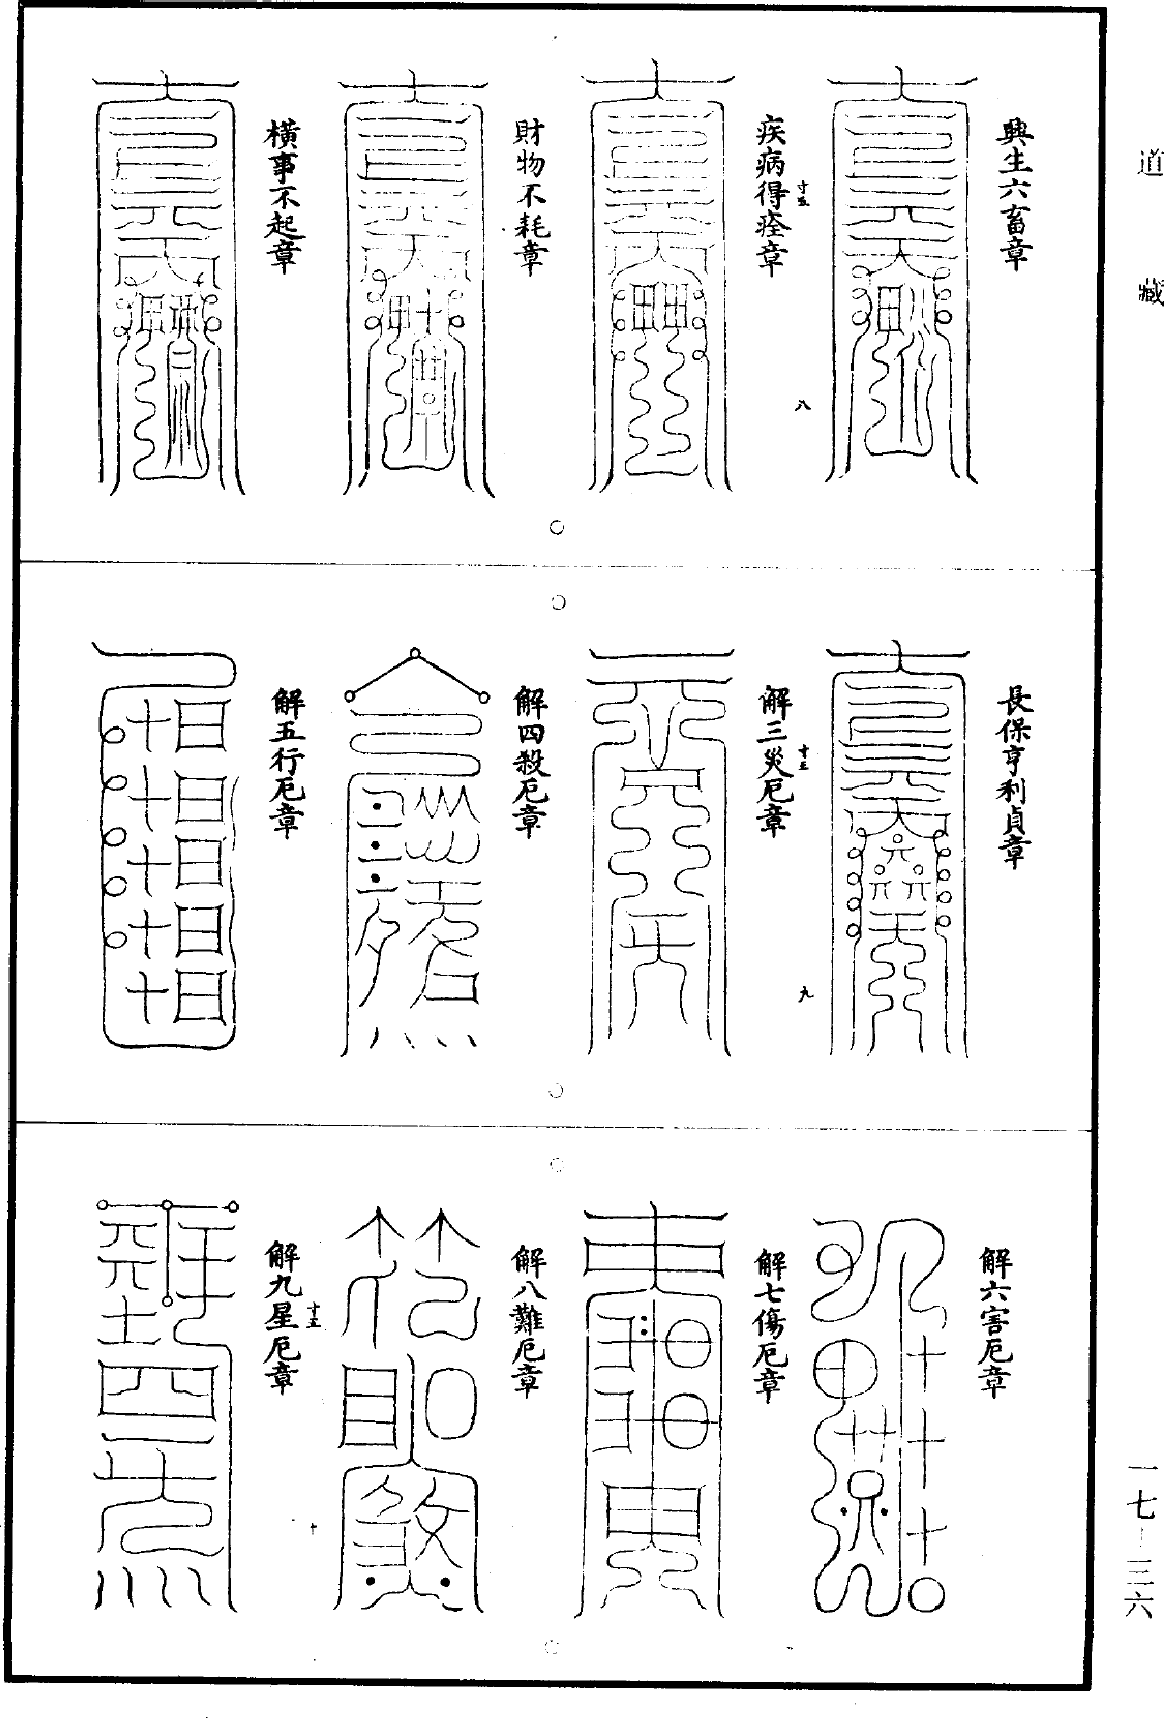 道藏
興生六畜章
疾病得痊章
寸五
八
財物不耗章
橫事不起章
長保亨利貞章
解三災厄章
寸五
九
解四殺厄章
解五行厄章
解六害厄章
解七傷厄章
解八難厄章
解九星厄章
寸五
十
一七-三六